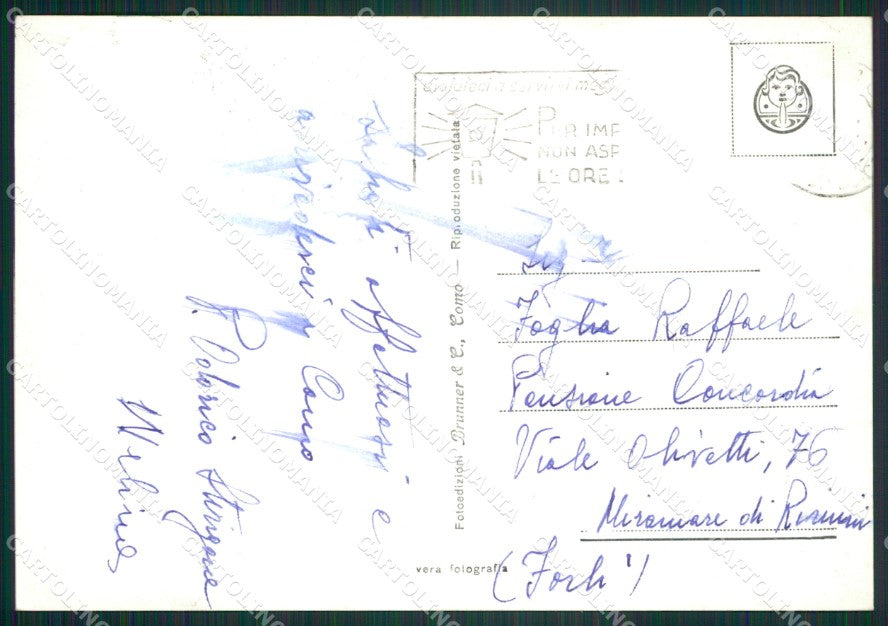 Saluti affettuosi e
arrivederci a Como
P. Odorico
Fotoedizioni Brunner & C., Como — Riproduzione vietata
vera fotografia
PER IMP
NON ASP
LE ORE
Sig.
Foglia Raffaele
Pensione Concordia
Viale Olivetti, 76
Miramare di Rimini
(Forlì)
CARTOLINOMANIA